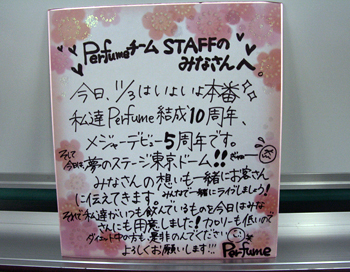 PerfumeチームSTAFFの
みなさんへ。
今日、11/3はいよいよ本番
私達Perfume結成10周年、
メジャーデビュー5周年です。
そして
今日は夢のステージ東京ドーム!!
みなさんの想いも一緒にお客さん
に伝えてきます。みんなで一緒にライブしましょう!
それで私達がいつも飲んでいるものを今日はみな
さんにも用意しました!カロリーも低いので
ダイエット中の方も、是非のんでください
よろしくお願いします!!!
Perfume